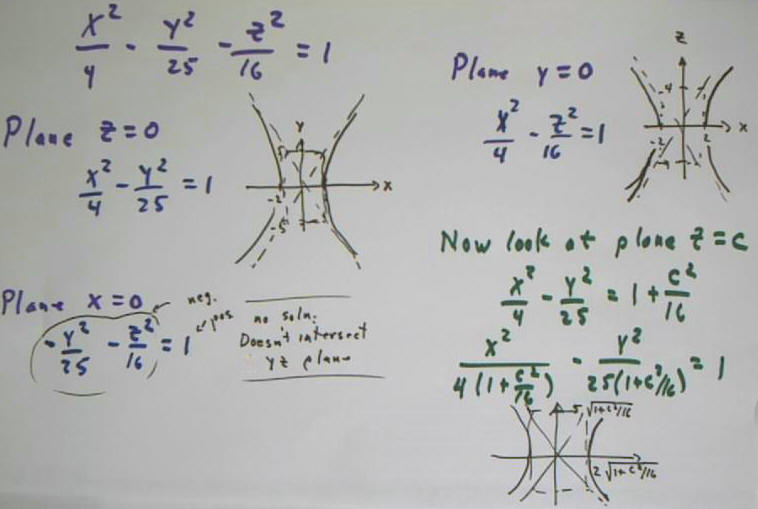 x²/4 - y²/25 - z²/16 = 1
Plane z=0
x²/4 - y²/25 = 1
y
5
-2
x
-5
Plane x=0
neg.
-y²/25 - z²/16 = 1
pos
no soln.
Doesn't intersect
yz plane
Plane y=0
x²/4 - z²/16 = 1
z
4
x
-2
2
-4
Now look at plane z=c
x²/4 - y²/25 = 1 + c²/16
x²/4(1+c²/16) - y²/25(1+c²/16) = 1
5√1+c²/16
2√1+c²/16